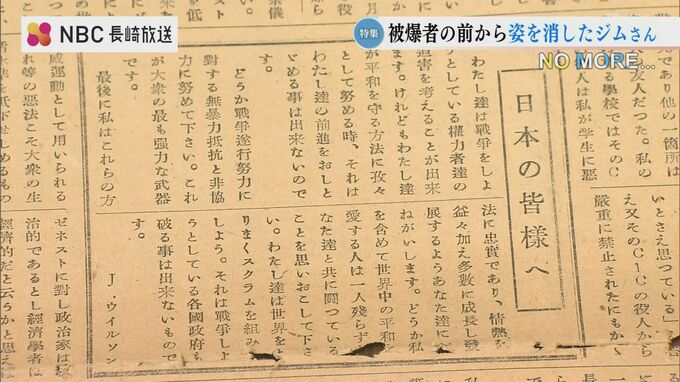 NBC 長崎放送
特集 被爆者の前から姿を消したジムさん
NO MORE...
日本の皆様へ
わたし達は戰爭をしよ
うとしている権力者達の
迫害を考えることが出來
ます。けれどもわたし達
が平和を守る方法に孜々
として努める時、それは
わたし達の前進をおしと
どめる事は出來ないので
す。
どうか戰爭遂行努力に
對する無暴力抵抗と非協
力に努めて下さい。これ
が大衆の最も强力な武器
です。
最後に私はこれらの方
法に忠實であり、情熱を
益々加え多數に成長し發
展するようあなた達にお
ねがいします。どうか私
を含めて世界中の平和を
愛する人は一人残らずあ
なた達と共に闘つている
ことを思いおこして下さ
い。わたし達は世界をと
りまくスクラムを組みま
しよう。それは戰爭しよ
うとしている各國政府も
破る事は出來ないもので
す。
J・ウイルソン
であり他の一箇所は
友人だつた。私の
る學校ではそのC
人は私が学生に惡
いとさえ思つている」
え又そのCICの役人から
嚴重に禁止されたにもか
威運動として用いられる
れ等の惡法こそ大衆の生
ゼネストに對し政治家は
治的であるとし經濟學者は
經濟的だと云うかと思え